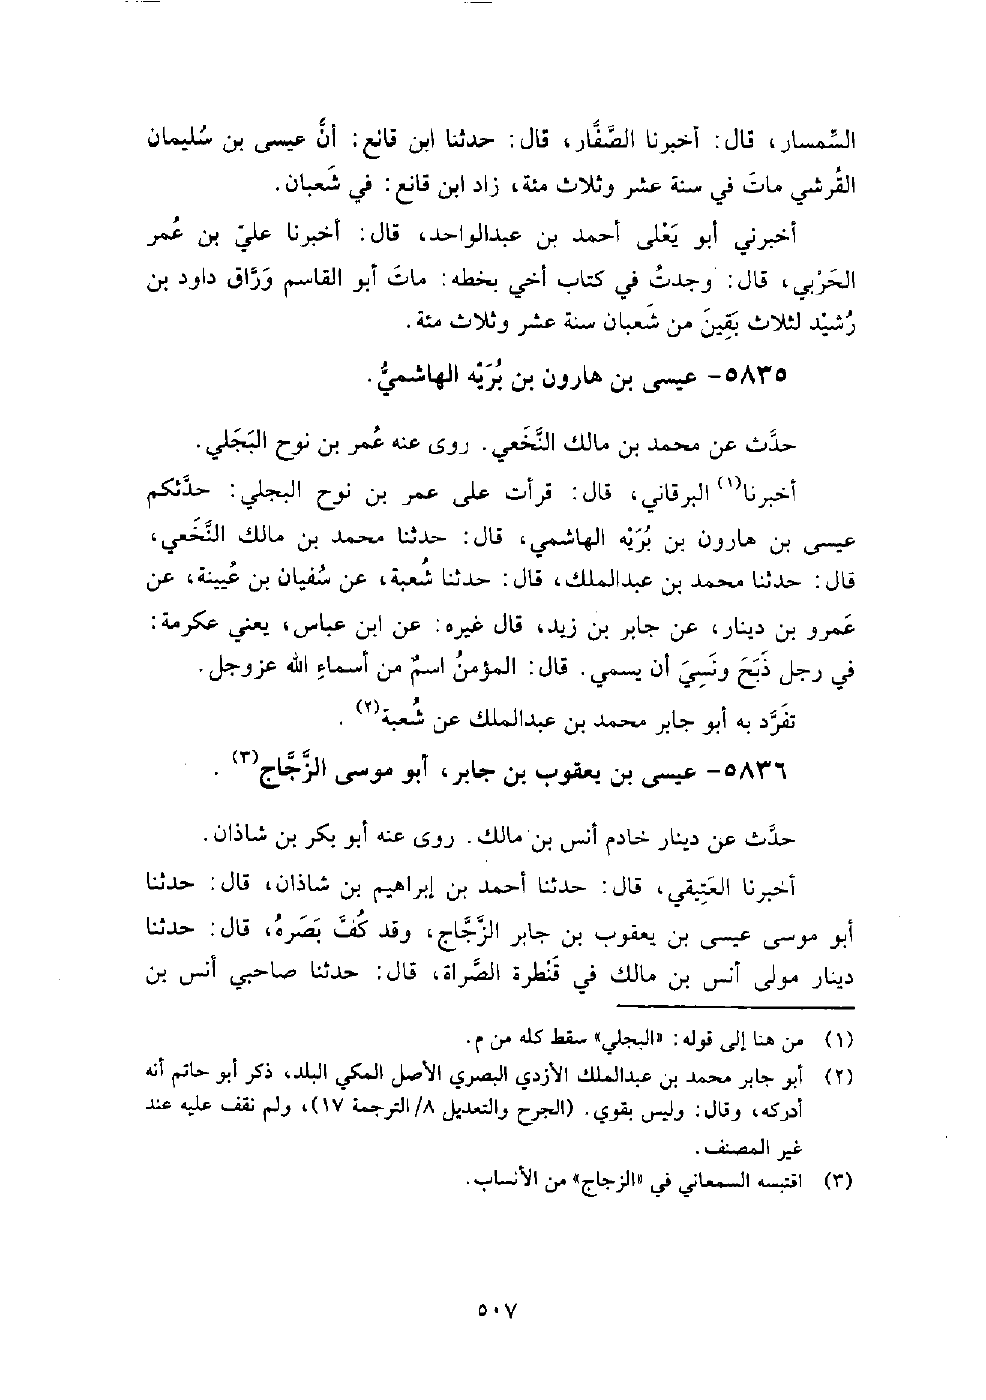 السِّمسار، قال: أخبرنا الصَّفَّار، قال: حدثنا ابن قانع: أنَّ عيسى بن سُليمان
القُرشي ماتَ في سنة عشر وثلاث مئة، زاد ابن قانع: في شَعبان.
أخبرني أبو يَعْلى أحمد بن عبدالواحد، قال: أخبرنا عليّ بن عُمر
الحَرْبي، قال: وجدتُ في كتاب أخي بخطه: ماتَ أبو القاسم وَرَّاق داود بن
رُشَيْد لثلاث بَقِينَ من شَعبان سنة عشر وثلاث مئة.
٥٨٣٥- عيسى بن هارون بن بُرَيْه الهاشميُّ.
حدَّث عن محمد بن مالك النَّخَعي. روى عنه عُمر بن نوح البَجَلي.
أخبرنا(١) البرقاني، قال: قرأت على عمر بن نوح البجلي: حدَّثكم
عيسى بن هارون بن بُرَيْه الهاشمي، قال: حدثنا محمد بن مالك النَّخَعي،
قال: حدثنا محمد بن عبدالملك، قال: حدثنا شُعبة، عن سُفيان بن عُيينة، عن
عَمرو بن دينار، عن جابر بن زيد، قال غيره: عن ابن عباس، يعني عكرمة:
في رجل ذَبَحَ ونَسِيَ أن يسمي. قال: المؤمنُ اسمٌ من أسماءِ الله عزوجل.
تفَرَّد به أبو جابر محمد بن عبدالملك عن شُعبة(٢).
٥٨٣٦- عيسى بن يعقوب بن جابر، أبو موسى الزَّجَّاج(٣).
حدَّث عن دينار خادم أنس بن مالك. روى عنه أبو بكر بن شاذان.
أخبرنا العَتِيقي، قال: حدثنا أحمد بن إبراهيم بن شاذان، قال: حدثنا
أبو موسى عيسى بن يعقوب بن جابر الزَّجَّاج، وقد كُفَّ بَصَرهُ، قال: حدثنا
دينار مولى أنس بن مالك في قَنْطرة الصَّراة، قال: حدثنا صاحبي أنس بن
(١) من هنا إلى قوله: «البجلي» سقط كله من م.
(٢) أبو جابر محمد بن عبدالملك الأزدي البصري الأصل المكي البلد، ذكر أبو حاتم أنه
أدركه، وقال: وليس بقوي. (الجرح والتعديل ٨/ الترجمة ١٧)، ولم نقف عليه عند
غير المصنف.
(٣) اقتبسه السمعاني في «الزجاج» من الأنساب.
٥٠٧